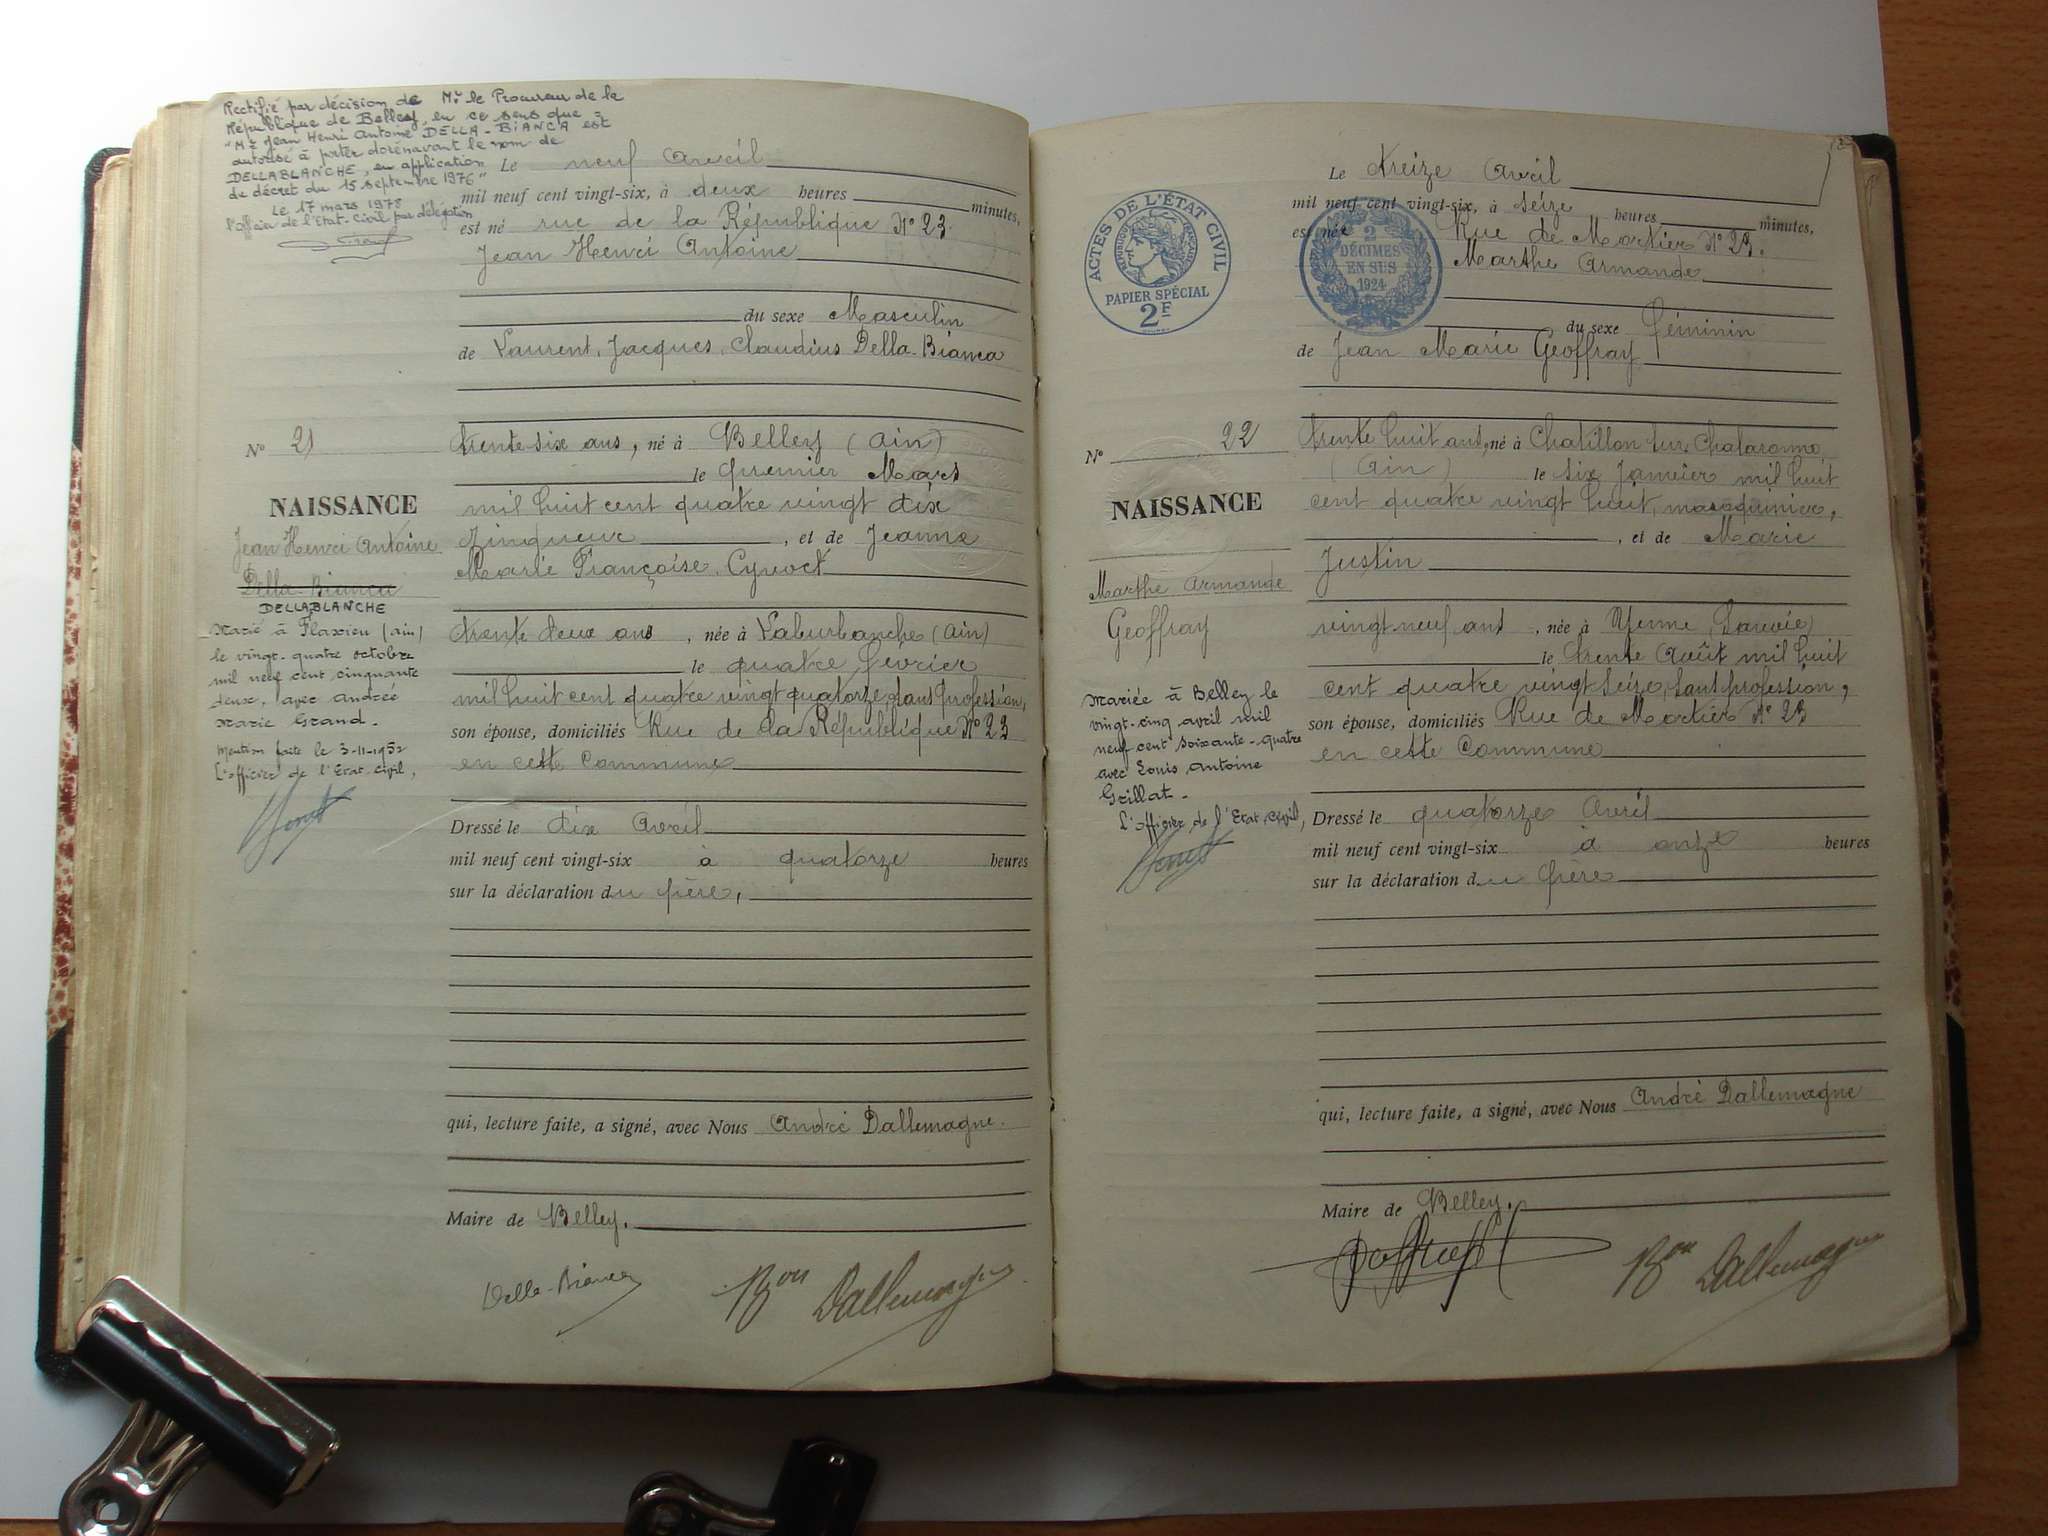 Rectifié par décision de Mr le Procureur de la
République de Belley, en ce sens que :
"Mr Jean Henri Antoine DELLA-BIANCA est
autorisé à porter dorénavant le nom de
DELLABLANCHE, en application
du décret du 15 septembre 1976"
Le 17 mars 1978
l'officier de l'Etat-Civil par délégation
Le neuf Avril
mil neuf cent vingt-six, à deux heures minutes,
est né rue de la République N° 23
Jean Henri Antoine
du sexe Masculin
de Laurent, Jacques, Claudius Della-Bianca
N° 21
trente-six ans, né à Belley (Ain)
le premier Mars
NAISSANCE
mil huit cent quatre vingt dix
Jean Henri Antoine
Zingueur, et de Jeanne
Della-Bianca
Marie Françoise
DELLABLANCHE
Marié à Flaxieu (ain)
le vingt-quatre octobre
mil neuf cent cinquante
deux, avec Andrée
Marie Grand.
Mention faite le 3-11-1952
L'officier de l'Etat Civil,
trente deux ans, née à Laburbanche (Ain)
le quatre février
mil huit cent quatre vingt quatorze, sans profession,
son épouse, domiciliés Rue de la République N° 23
en cette Commune
Dressé le dix Avril
mil neuf cent vingt-six à quatorze heures
sur la déclaration du père,
qui, lecture faite, a signé, avec Nous André Dallemagne.
Maire de Belley.
Della-Bianca
Bon Dallemagne
ACTES DE L'ÉTAT CIVIL
RÉPUBLIQUE FRANÇAISE
PAPIER SPÉCIAL
2F
2
DÉCIMES
EN SUS
1924
Le treize Avril
mil neuf cent vingt-six, à seize heures minutes,
est née Rue de Mortier N° 23.
Marthe Armande
du sexe féminin
de Jean Marie Geoffray
N° 22
trente huit ans, né à Chatillon sur Chalaronne,
(Ain) le six Janvier mil huit
NAISSANCE
cent quatre vingt huit, maroquinier,
, et de Marie
Marthe Armande
Justin
Geoffray
vingt neuf ans, née à Yenne (Savoie)
le trente Août mil huit
Mariée à Belley le
vingt-cinq avril mil
neuf cent soixante-quatre
avec Louis Antoine
Grillat.
L'officier de l'Etat Civil,
cent quatre vingt seize, sans profession,
son épouse, domiciliés Rue de Mortier N° 23
en cette Commune
Dressé le quatorze Avril
mil neuf cent vingt-six à onze heures
sur la déclaration du père
qui, lecture faite, a signé, avec Nous André Dallemagne
Maire de Belley.
Bon Dallemagne